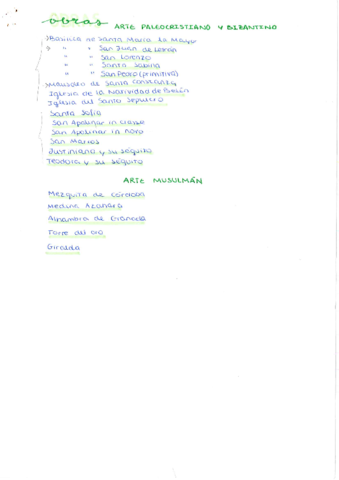 obras ARTE PALEOCRISTIANO Y BIZANTINO
Basílica de Santa María la Mayor
" " San Juan de Letrán
" " San Lorenzo
" " Santa Sabina
" " San Pedro (primitiva)
Mausoleo de Santa Constanza
Iglesia de la Natividad de Belén
Iglesia del Santo Sepulcro
Santa Sofía
San Apolinar in Classe
San Apolinar in Novo
San Marcos
Justiniano y su séquito
Teodora y su séquito
ARTE MUSULMÁN
Mezquita de Córdoba
Medina Azahara
Alhambra de Granada
Torre del oro
Giralda